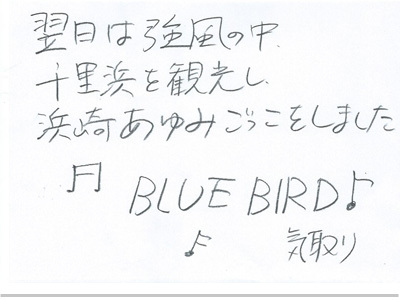 翌日は強風の中
千里浜を観光し、
浜崎あゆみごっこをしました
♫ BLUE BIRD♪
♪ 気取り